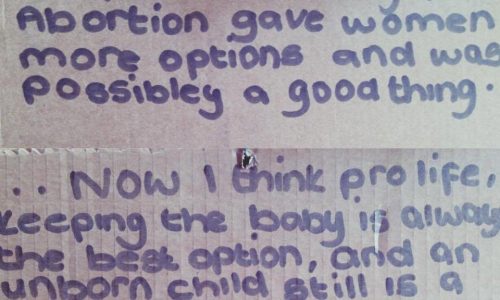 Abortion gave women
more options and was
possibley a good thing.
.. NOW I think pro life,
keeping the baby is alway
the best option, and an
unborn child still is a